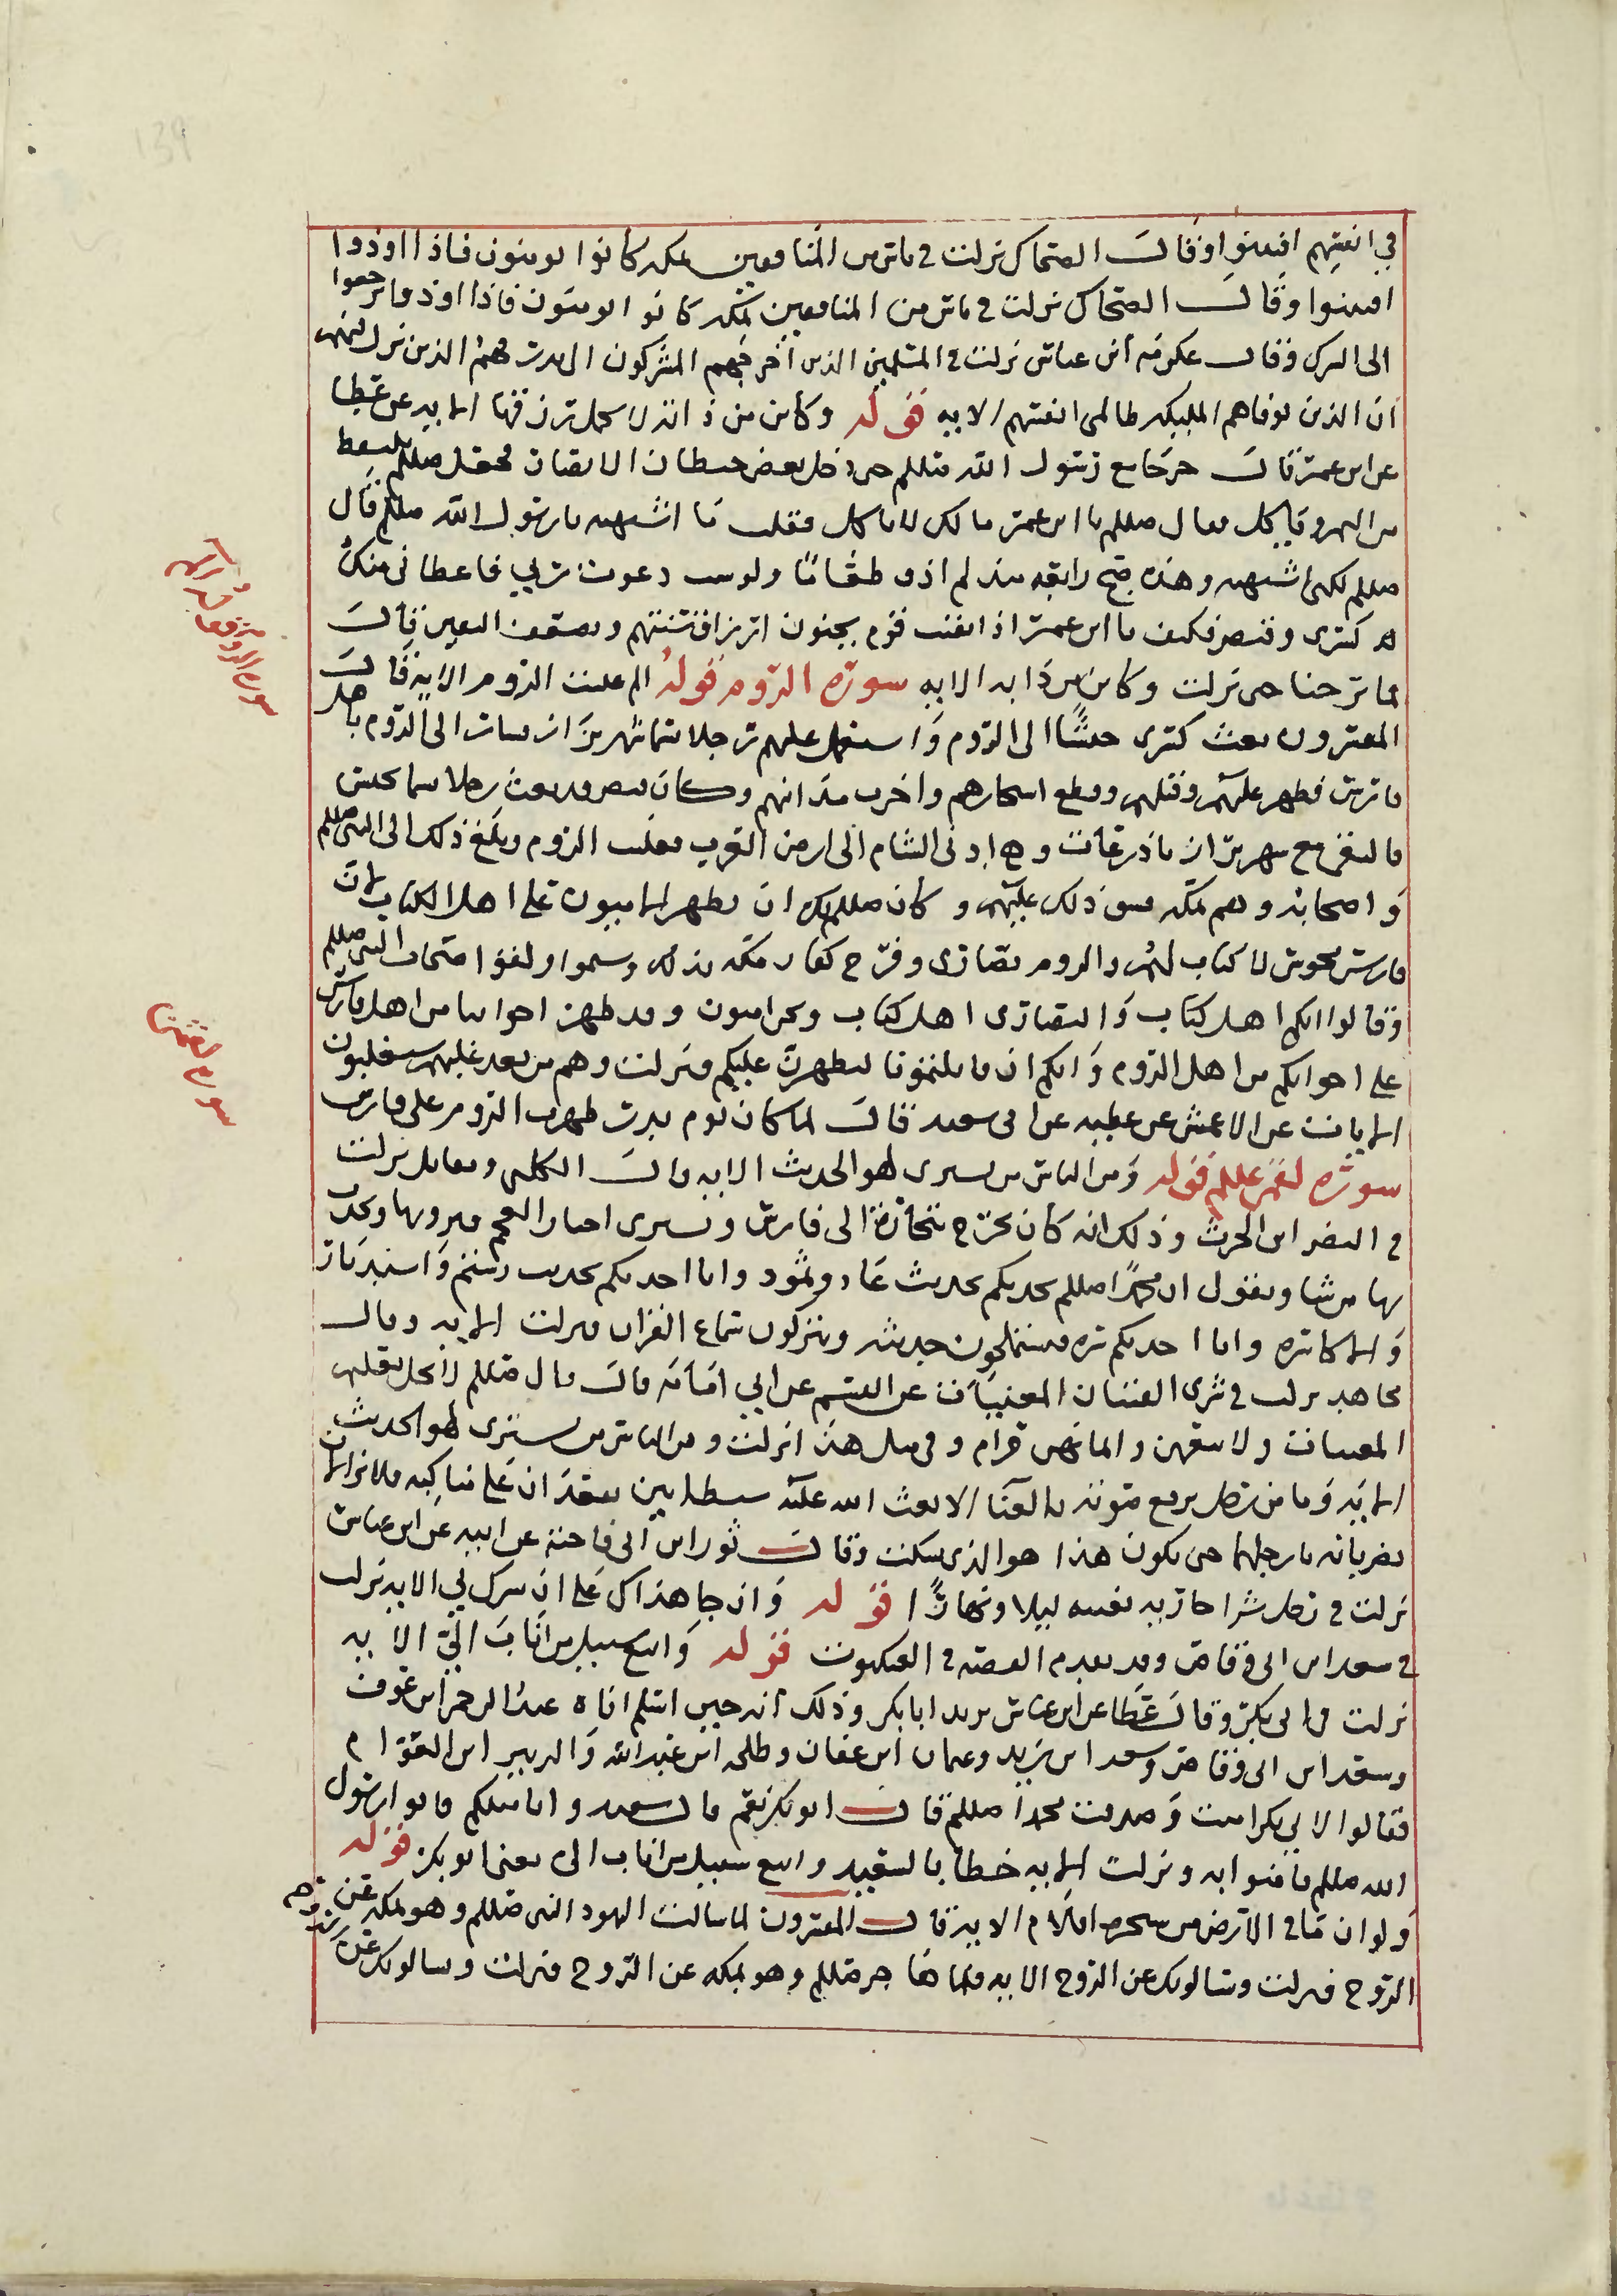 في انفسهم افتتنوا وقال الضحاك نزلت في ناس من المنافقين بمكه كانوا يومنون فاذا اوذوا
افتتنوا وقال الضحاك نزلت في ناس من المنافقين بمكه كانوا يومنون فاذا اوذوا رجعوا
الى الشرك وقال عكرمه ابن عباس نزلت في المسلمين الذين اخرجهم المشركون الى بدر فهم الذين نزل فيهم
ان الذين توفاهم المليكه ظالمي انفسهم الايه قوله وكاين من دابه لا تحمل رزقها الايه عن عطا
عن ابن عمر قال خرجنا مع رسول الله صللم حتى دخل بعض حيطان الانصار فجعل صللم يلتقط
من التمر وياكل فقال صللم يا ابن عمر ما لك لا تاكل فقلت ما اشتهيه يا رسول الله صللم قال
صللم لكني اشتهيه وهذه صبح رابعه منذ لم اذق طعاما ولو شيت دعوت ربي فاعطاني ملك
كسرى وقيصر فكيف يا ابن عمر اذا بقيت في قوم يحبون ارزاق سنتهم ويضعف اليقين قال
فما برحنا حتى نزلت وكاين من دابه الايه سورة الروم قوله الم غلبت الروم الايه قال
المفسرون بعث كسرى جيشا الى الروم واستعمل عليهم رجلا شهربزان فسار الى الروم باهل
فارس فظهر عليهم وقتلهم وقطع اشجارهم واخرب مدائنهم وكان قيصر قد بعث رجلا يحنس
فالتقى مع شهربزان باذرعات وهي ادنى الشام الى ارض العرب فغلب الروم وبلغ ذلك الى النبي صللم
واصحابه وهم بمكه فشق ذلك عليهم وكان صللم يكره ان يظهر الاميون على اهل الكتاب لان
فارس مجوس لا كتاب لهم والروم نصارى وفرح كفار مكه بذلك وشمتوا ولقوا اصحاب النبي صللم
وقالوا انكم اهل كتاب والنصارى اهل كتاب ونحن اميون وقد ظهر اخواننا من اهل فارس
على اخوانكم من اهل الروم وانكم ان قاتلتمونا لنظهرن عليكم فنزلت وهم من بعد غلبهم سيغلبون
الايات عن الاعمش عن عطيه عن ابي سعيد قال لما كان يوم بدر ظهرت الروم على فارس
سورة لقمن عللم قوله ومن الناس من يشري لهو الحديث الايه قال الكلبي ومقاتل نزلت
في النضر ابن الحرث وذلك انه كان يخرج تاجرا الى فارس ويشتري اخبار العجم فيرويها ويحدث
بها قريشا ويقول ان محمدا صللم يحدثكم بحديث عاد وثمود وانا احدثكم بحديث رستم واسفنديار
والاكاسره وانا احدثكم فيستملحون حديثه ويتركون سماع القران فنزلت الايه وقال
مجاهد نزلت في شرى القينات المغنيات عن القسم عن ابي امامه قال قال صللم لا يحل تعليم
المغنيات ولا بيعهن واثمانهن حرام وفي مثل هذا نزلت ومن الناس من يشتري لهو الحديث
الايه وما من رجل يرفع صوته بالغنا الا بعث الله عليه شيطانين يقعدان على مناكبه فلا يزالان
يضربانه بارجلهما حتى يكون هذا هو الذي يسكت وقال ثور ابن ابي فاخته عن ابيه عن ابن عباس
نزلت في رجل شرا جاريه تغنيه ليلا ونهارا قوله وان جاهداك على ان تشرك بي الايه نزلت
في سعد ابن ابي وقاص وقد تقدم القصه في العنكبوت قوله واتبع سبيل من اناب الي الايه
نزلت في ابي بكر وقال عطا عن ابن عباس يريد ابا بكر وذلك انه حين اسلم اتاه عبد الرحمن ابن عوف
وسعد ابن ابي وقاص وسعد ابن يزيد وعثمان ابن عفان وطلحه ابن عبد الله والزبير ابن العوام
فقالوا لابي بكر امنت وصدقت محمدا صللم قال ابو بكر نعم قال سعيد وانا مثلكم فاتوا رسول
الله صللم فامنوا به ونزلت الايه خطابا لسعيد واتبع سبيل من اناب الي يعني ابو بكر قوله
ولو ان ما في الارض من شجره اقلام الايه قال المفسرون لما سالت اليهود النبي صللم وهو بمكه عن
الروح فنزلت ويسالونك عن الروح الايه فلما هاجر صللم وهو بمكه عن الروح فنزلت ويسالونك عن
سورة الروم
سورة لقمن
139